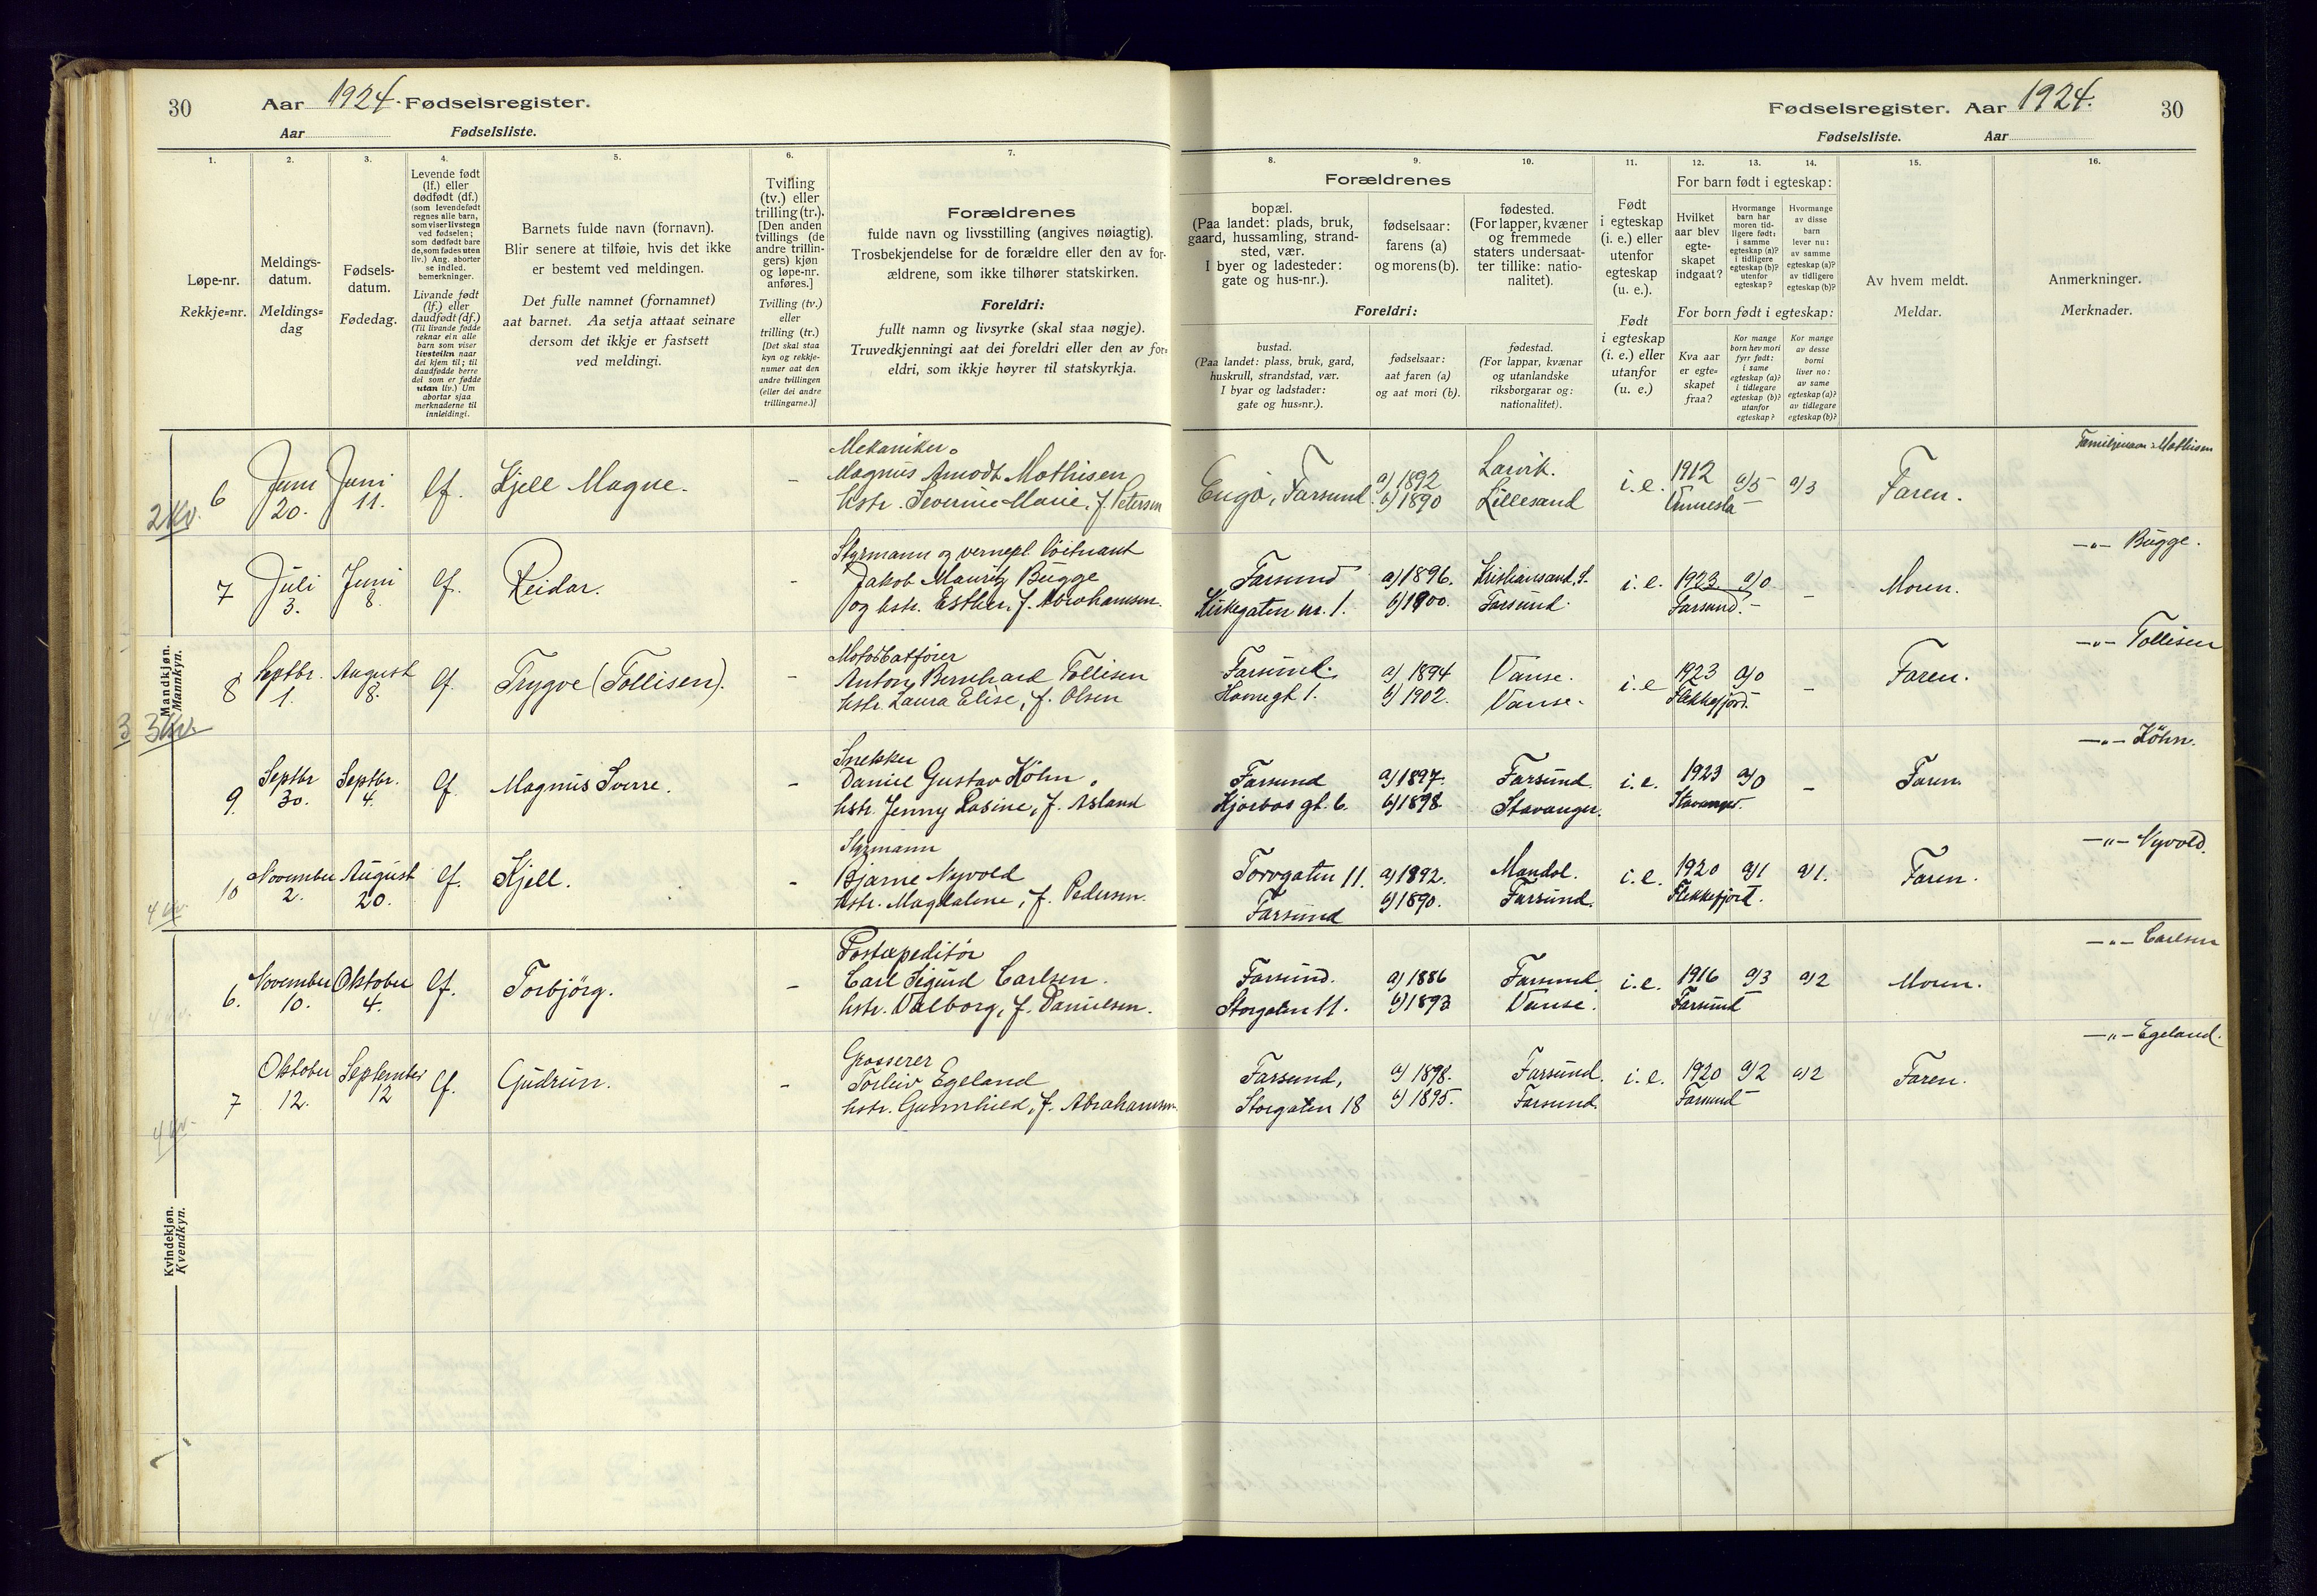 30
Aar 1924. Fødselsregister.
Aar
Fødselsliste.
Fødselsregister. Aar 1924.
30
Fødselsliste.
Aar
1.
2.
3.
4.
5.
6.
7.
8.
9.
10.
11.
12.
13.
14.
15.
16.
Løpe-nr.
Rekkje=nr.
Meldings-
datum.
Meldings=
dag
Fødsels-
datum.
Fødedag.
Levende født
(lf.) eller
dødfødt (df.)
(som levendefødt
regnes alle barn,
som viser livstegn
ved fødselen;
som dødfødt bare
de, som fødes uten
liv.) Ang. aborter
se indled.
bemerkninger.
Livande født
(lf.) eller
daudfødt (df.)
(Til livande fødde
reknar ein alle
barn som viser
livsteikn naar
dei kjem til; til
daudfødde berre
dei som er fødde
utan liv.) Um
abortar sjaa
merknaderne til
innleidingi.
Barnets fulde navn (fornavn).
Blir senere at tilføie, hvis det ikke
er bestemt ved meldingen.
Det fulle namnet (fornamnet)
aat barnet. Aa setja attaat seinare
dersom det ikkje er fastsett
ved meldingi.
Tvilling
(tv.) eller
trilling (tr.).
[Den anden
tvillings (de
andre trillin-
gers) kjøn
og løpe-nr.
anføres.]
Tvilling (tv.)
eller
trilling (tr.)
[Det skal staa
kyn og rekkje-
numer aat den
andre tvillingen
(eller dei andre
trillingarne.)]
Forældrenes
fulde navn og livsstilling (angives nøiagtig).
Trosbekjendelse for de forældre eller den av for-
ældrene, som ikke tilhører statskirken.
Foreldri:
fullt namn og livsyrke (skal staa nøgje).
Truvedkjenningi aat dei foreldri eller den av for=
eldri, som ikkje høyrer til statskyrkja.
Forældrenes
bopæl.
(Paa landet: plads, bruk,
gaard, hussamling, strand-
sted, vær.
I byer og ladesteder:
gate og hus-nr.).
fødselsaar:
farens (a)
og morens (b).
fødested.
(For lapper, kvæner
og fremmede
staters undersaat-
ter tillike: natio-
nalitet).
Foreldri:
bustad.
(Paa landet: plass, bruk, gard,
huskrull, strandstad, vær.
I byar og ladstader:
gate og hus=nr.).
fødselsaar:
aat faren (a)
og aat mori (b).
fødestad.
(For lappar, kvænar
og utanlandske
riksborgarar og:
nationalitet).
Født
i egteskap
(i. e.) eller
utenfor
egteskap
(u. e.).
Født
i egteskap
(i. e.) eller
utanfor
(u. e.)
For barn født i egteskap:
Hvilket
aar blev
egte-
skapet
indgaat?
Hvormange
barn har
moren tid-
ligere født:
i samme
egteskap (a)?
i tidligere
egteskap (b)?
utenfor
egteskap?
Hvormange
av disse
barn
lever nu:
av samme
egteskap (a)?
av tidligere
egteskap (b)?
For born født i egteskap:
Kva aar
er egte=
skapet
fraa?
Kor mange
born hev mori
fyrr født:
i same
egteskap (a)?
i tidlegare
egteskap (b)?
utanfor
egteskap?
Kor mange
av desse
borni
liver no:
av same
egteskap (a)?
av tidlegare
egteskap (b)?
Av hvem meldt.
Meldar.
Anmerkninger.
Merknader.
Mandkjøn.
Mannkyn.
2 Kv.
6 Juni 20. Juni 11. lf. Kjell Magne. -
Mekaniker
Magnus Amodt Mathisen
hstr. Severine Marie, f. Petersen
Engø, Farsund a) 1892 b) 1890 Larvik. Lillesand i. e. 1912 Vennesla a/5 a/3 Faren. Familienavn: Mathisen
7 Juli 3. Juni 8. lf. Reidar. -
Styrmann og vernepl. løitnant
Jakob Mauritz Bugge
og hstr. Esther, f. Abrahamsen.
Farsund Kirkegaten nr. 1. a) 1896. b) 1900. Kristiansand. S. Farsund. i. e. 1923 Farsund. a/0 - Moren. -"- Bugge.
8 Septbr. 1. August 8. lf. Trygve (Tollisen). -
Motorbåtfører
Anton Bernhard Tollisen
hstr. Laura Elise, f. Olsen
Farsund. Havnegt 1. a) 1894 b) 1902. Vanse. Vanse. i. e 1923 Flekkefjord. a/0 - Faren. -"- Tollisen
3 3 Kv.
9. Septbr 30. Septbr. 4. lf. Magnus Sverre. -
Snekker
Daniel Gustav Köhn
hstr. Jenny Rasine, f. Asland
Farsund Kjørbos gt. 6. a) 1897. b) 1898. Farsund. Stavanger. i. e. 1923 Stavanger. a/0 - Faren. -"- Köhn.
10 November 2. August 20. lf. Kjell. -
Styrmann
Bjarne Nyvold
hstr. Magdalene, f. Pedersen.
Torvgaten 11. Farsund a) 1892. b) 1890. Mandal. Farsund. i. e. 1920 Flekkefjord. a/1 a/1. Faren. -"- Nyvold.
4 kv.
Kvindekjøn.
Kvendkyn.
6. November 10. Oktober 4. lf. Torbjörg. -
Postexpeditør
Carl Sigurd Carlsen.
hstr. Valborg, f. Danielsen.
Farsund. Storgaten 11. a) 1886 b) 1893 Farsund. Vanse. i. e. 1916 Farsund a/3 a/2 Moren. -"- Carlsen
7 Oktober 12. September 12 lf. Gudrun. -
Grosserer
Torleiv Egeland
hstr. Gunnhild, f. Abrahamsen.
Farsund, Storgaten 18 a) 1898. b) 1895. Farsund. Farsund. i. e. 1920 Farsund a/2 a/2 Faren. -"- Egeland.
4 kv.